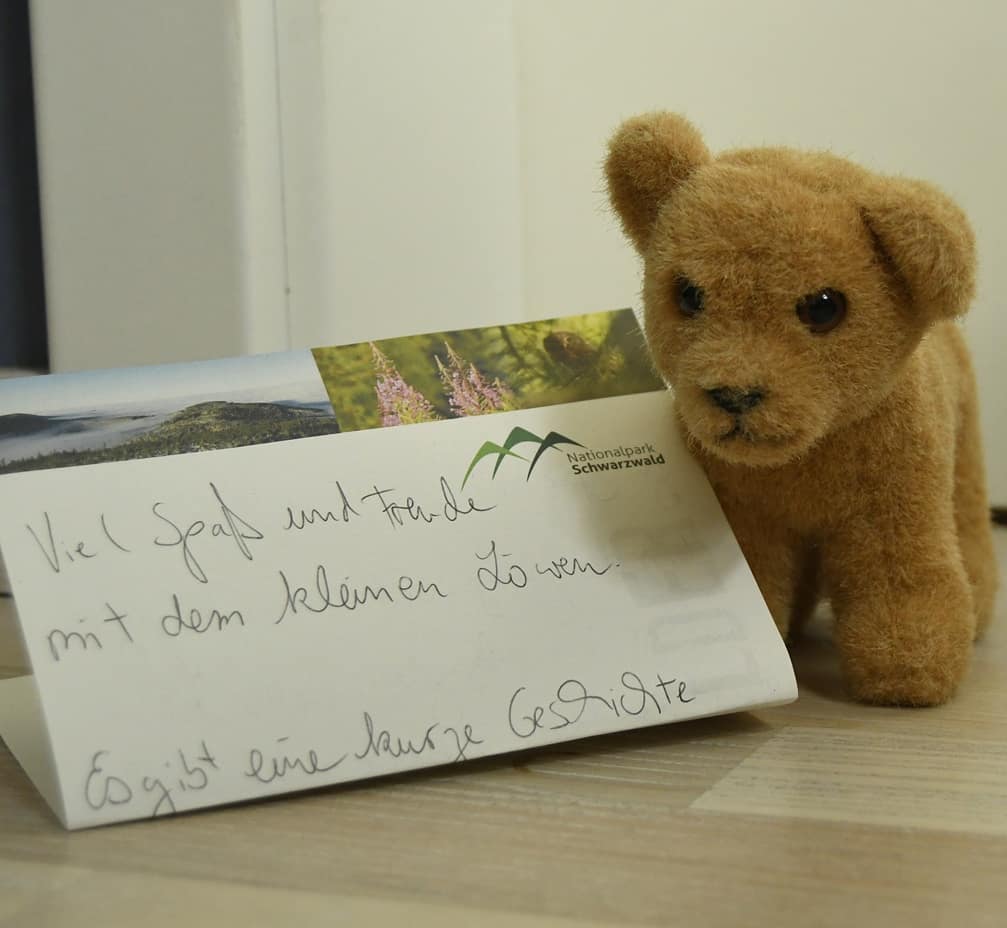 Nationalpark
Schwarzwald
Viel Spaß und Freude
mit dem kleinen Löwen.
Es gibt eine kurze Geschichte